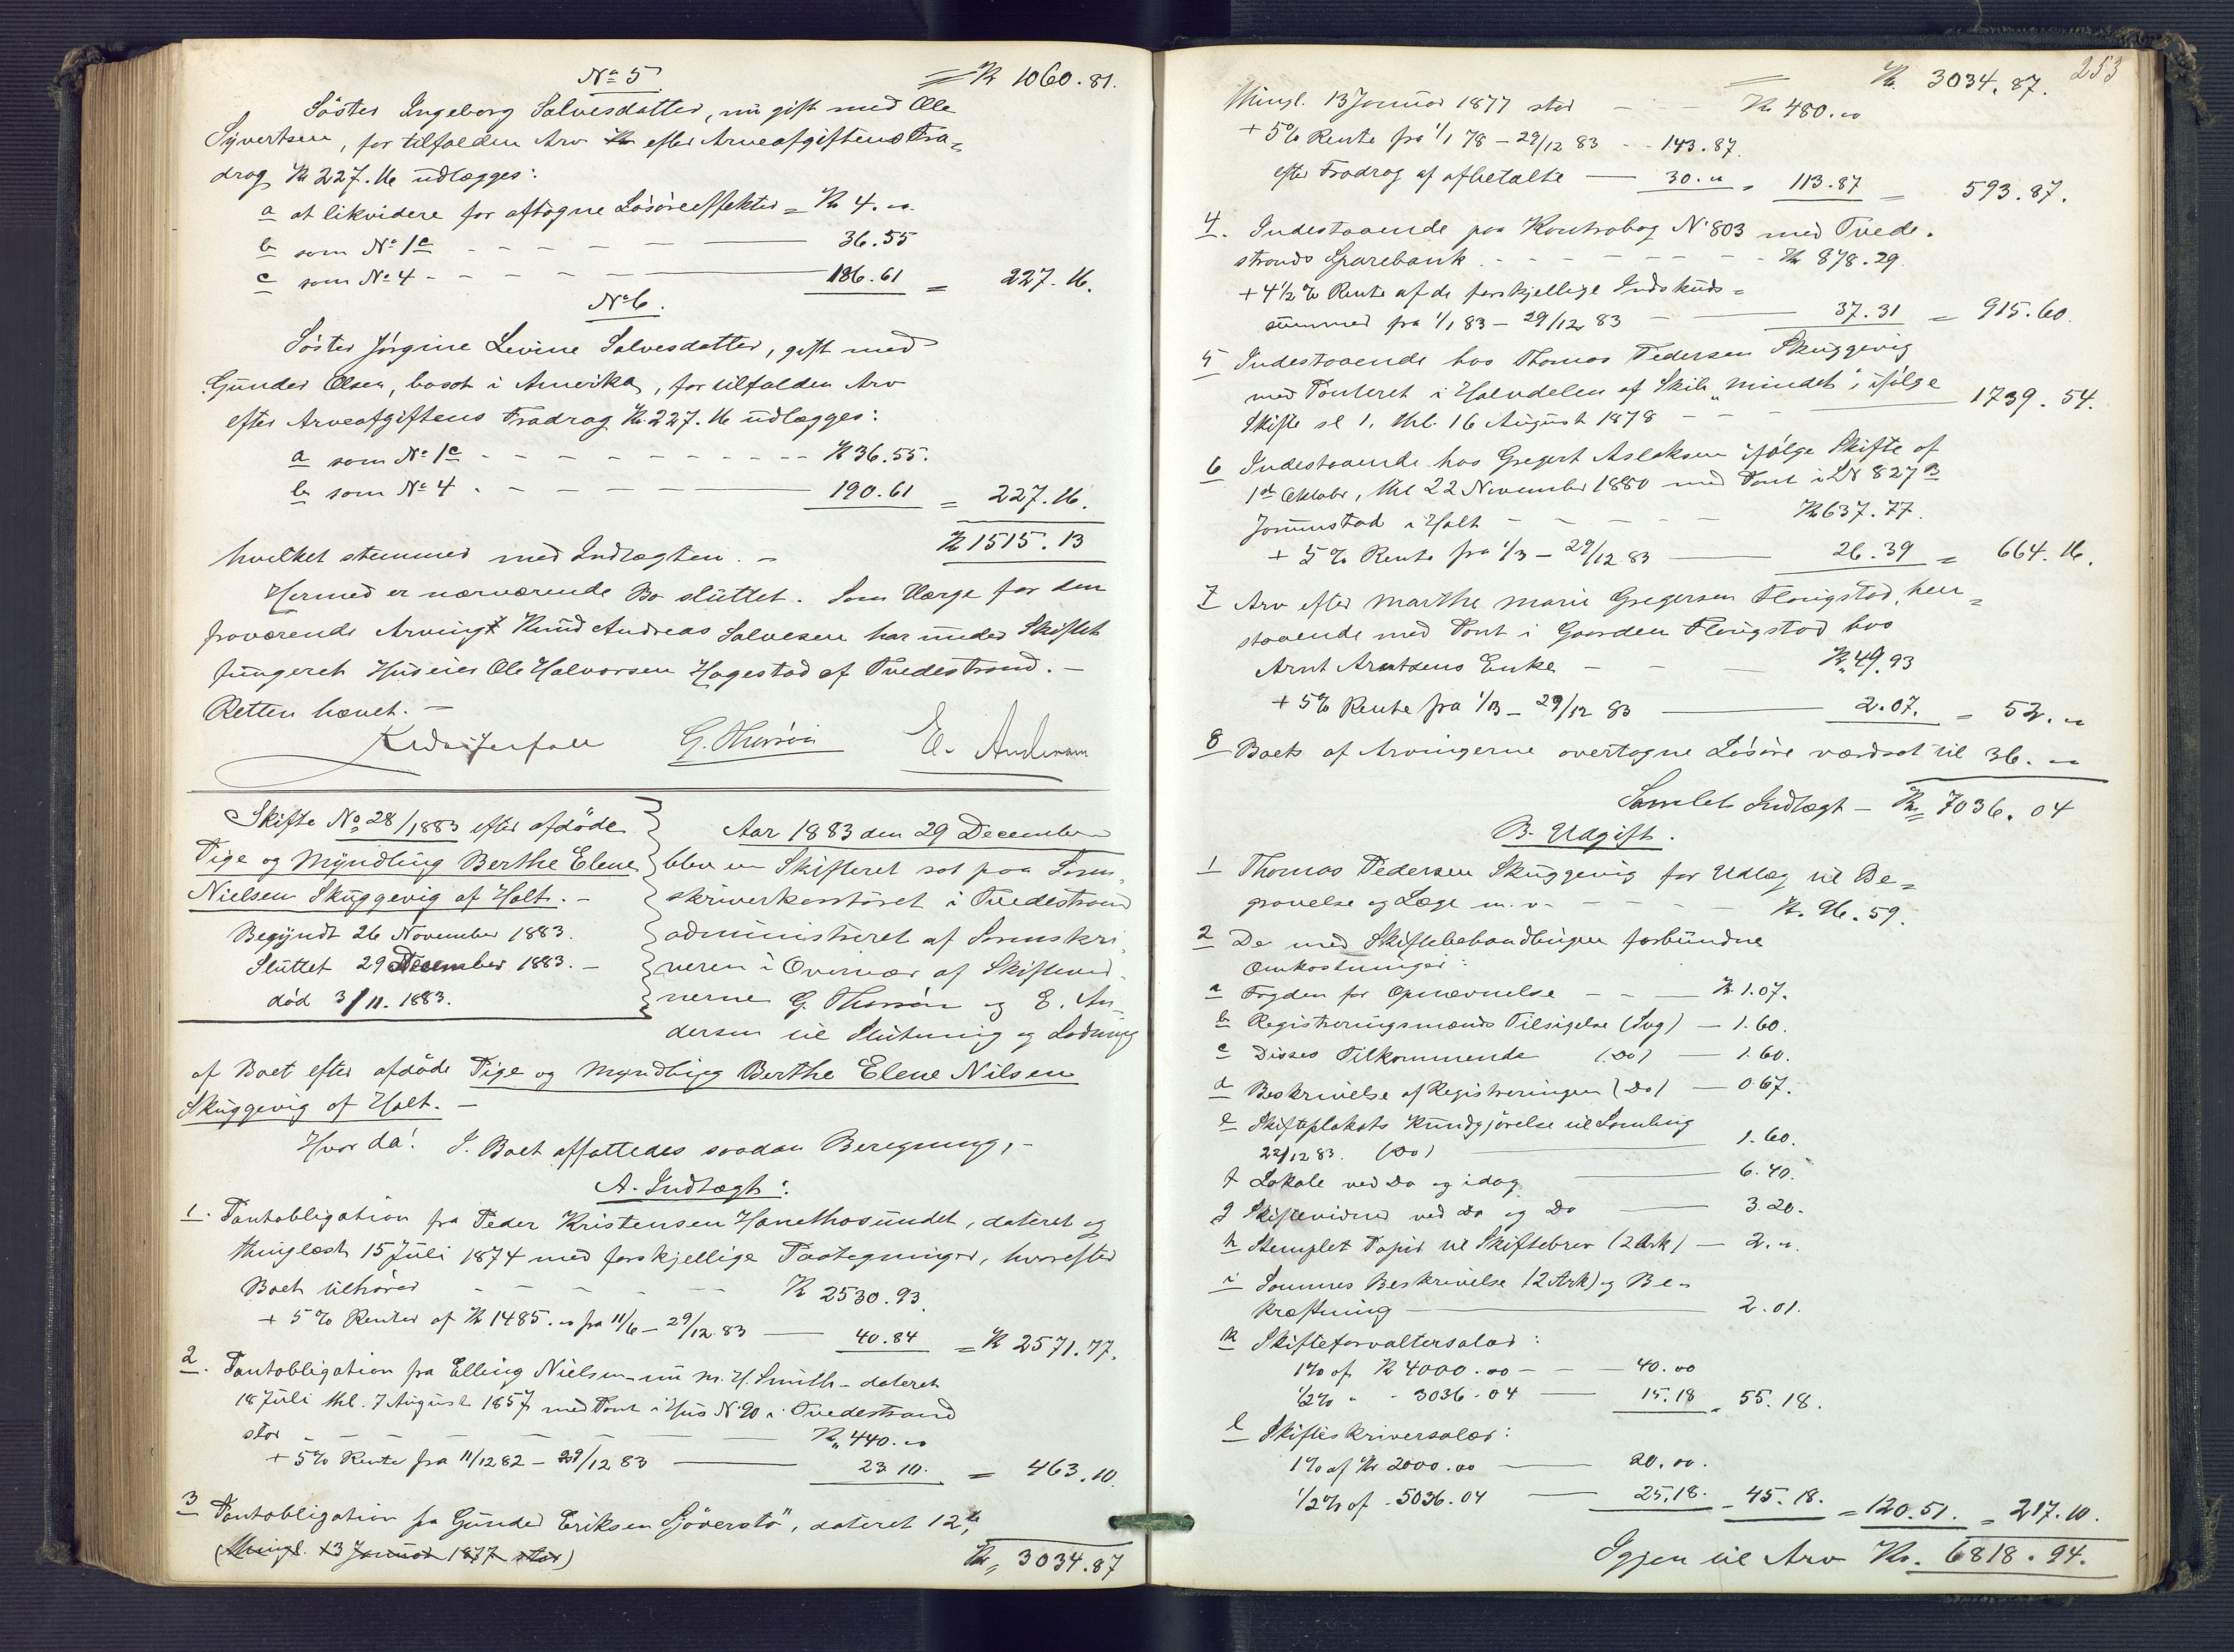 No 5. = Kr 1060.81.
Söster Ingeborg Salvesdatter, nu gift med Ole
Syvertsen, for tilfalden Arv efter Arveafgiftens Fra-
drag Kr 227.16 udlægges:
a at likvidere for aftagne Løsøreeffekter = Kr 4.00
b som No 1c - - - - - 36.55
c som No 4 - - - - 186.61 = 227.16.
No 6.
Söster Jörgine Levine Salvesdatter, gift med
Gunder Olsen, bosat i Amerika, for tilfalden Arv
efter Arveafgiftens Fradrag Kr. 227.16 udlægges:
a som No 1c - - - - - - - - - - Kr 36.55.
b som No 4 - - - - - 190.61 = 227.16.
hvilket stemmer med Indtægten. - Kr 1515.13
Hermed er nærværende Bo sluttet. Som Værge for den
fraværende Arving Knud Andreas Salvesen har under Skiftet
fungeret Huseier Ole Halvorsen Hagestad af Tvedestrand. -
Retten hævet. -
G. Thorsøn E. Andersen
Skifte No 28/1883 efter afdöde
Pige og Myndling Berthe Elene
Nielsen Skuggevig af Holt. -
Begyndt 26 November 1883.
Sluttet 29 December 1883. -
död 3/11. 1883.
Aar 1883 den 29 December
blev en Skifteret sat paa Soren-
skriverkontoret i Tvedestrand
administreret af Sorenskri-
veren i Overvær af Skiftevid-
nerne G. Thorsøn og E. An-
dersen til Slutning og Lodning
af Boet efter afdöde Pige og Myndling Berthe Elene Nilsen
Skuggevig af Holt. -
Hvor da: I Boet affattedes saadan Beregning,
A. Indtægt:
1. Pantobligation fra Peder Kristensen Hanethosundet, dateret og
thinglæst 15 Juli 1874 med forskjellige Paategninger, hvorefter
Boet tilhörer - - - - - Kr 2530.93.
+ 5% Renter af Kr 1485.00 fra 11/6 - 29/12 83 — 40.84 = Kr 2571.77.
2. Pantobligation fra Elling Nielsen - nu M. H. Smith - dateret
18 Juli thl. 7 August 1857 med Pant i Hus No 90 i Tvedestrand
stor - - - - - - - Kr. 440.00
+ 5% Rente fra 11/12 82 - 29/12 83 — 23.10. = 463.10.
3 Pantobligation fra Gunder Eriksen Sjöverstö, dateret 12te,
(Thingl. 13 Januar 1877 stor) Kr. 3034.87
253
Kr. 3034.87.
Thingl. 13 Januar 1877 stor - - - Kr 480.00
+ 5% Rente fra 1/1 78 - 29/12 83 - - 143.87.
efter Fradrag af afbetalte — 30.00 = 113.87 = 593.87.
4. Indestaaende paa Kontrabog No 803 med Tvede-
strands Sparebank - - - - - - - Kr 878.29.
+ 4 1/2 % Rente af de forskjellige Indskuds-
summer fra 1/1 83 - 29/12 83 — 37.31 = 915.60.
5 Indestaaende hos Thomas Pedersen Skuggevig
med Panteret i Halvdelen af Skib "Mindet", ifölge
Skifte sl 1. thl. 16 August 1878 - - - 1739.54.
6 Indestaaende hos Gregert Aslaksen ifölge Skifte af
1ste Oktober, thl 22 November 1880 med Pant i LN 827 B
Jorunstad i Holt - - - - - Kr 637.77.
+ 5% Rente fra 1/3 - 29/12 83 — 26.39 = 664.16.
7 Arv efter Marthe Marie Gregersen Flougstad, hen-
staaende med Pant i Gaarden Flougstad hos
Arnt Arntzens Enke - - - Kr. 49.93
+ 5% Rente fra 1/3 - 29/12 83 — 2.07. = 52.00
8 Boets af Arvingerne overtagne Løsøre værdsat til 36.00
Samlet Indtægt - Kr. 7036.04
B. Udgift.
1 Thomas Pedersen Skuggevig for Udlæg til Be-
gravelse og Læge m.v. - - - - - Kr. 96.59.
2 De med Skiftebehandlingen forbundne
Omkostninger:
a Fogden for Opnævnelse - - — Kr. 1.07.
b Registreringsmænds Tilsigelse (Svg) — 1.60.
c Disses Tilkommende (Do) — 1.60.
d Beskrivelse af Registreringen (Do) — 0.67.
e Skifteplakats Kundgjörelse til Samling
22/12 83. (Do) — 1.60.
f Lokale ved Do og idag — 6.40.
g Skiftevidner ved Do og Do — 3.20.
h Stemplet Papir til Skiftebrev (2 Ark) — 2.00.
i Sammes Beskrivelse (2 Ark) og Be-
kræftning — 2.01.
k Skifteforvaltersalær:
1% af Kr 4000.00 - - — 40.00
1/2% " - 3036.04 — 15.18 = 55.18.
l Skifteskriversalær:
1% af Kr 2000.00 — 20.00.
1/2% af - 5036.04 — 25.18. - 45.18. = 120.51. = 217.10.
Igjen til Arv Kr. 6818.94.